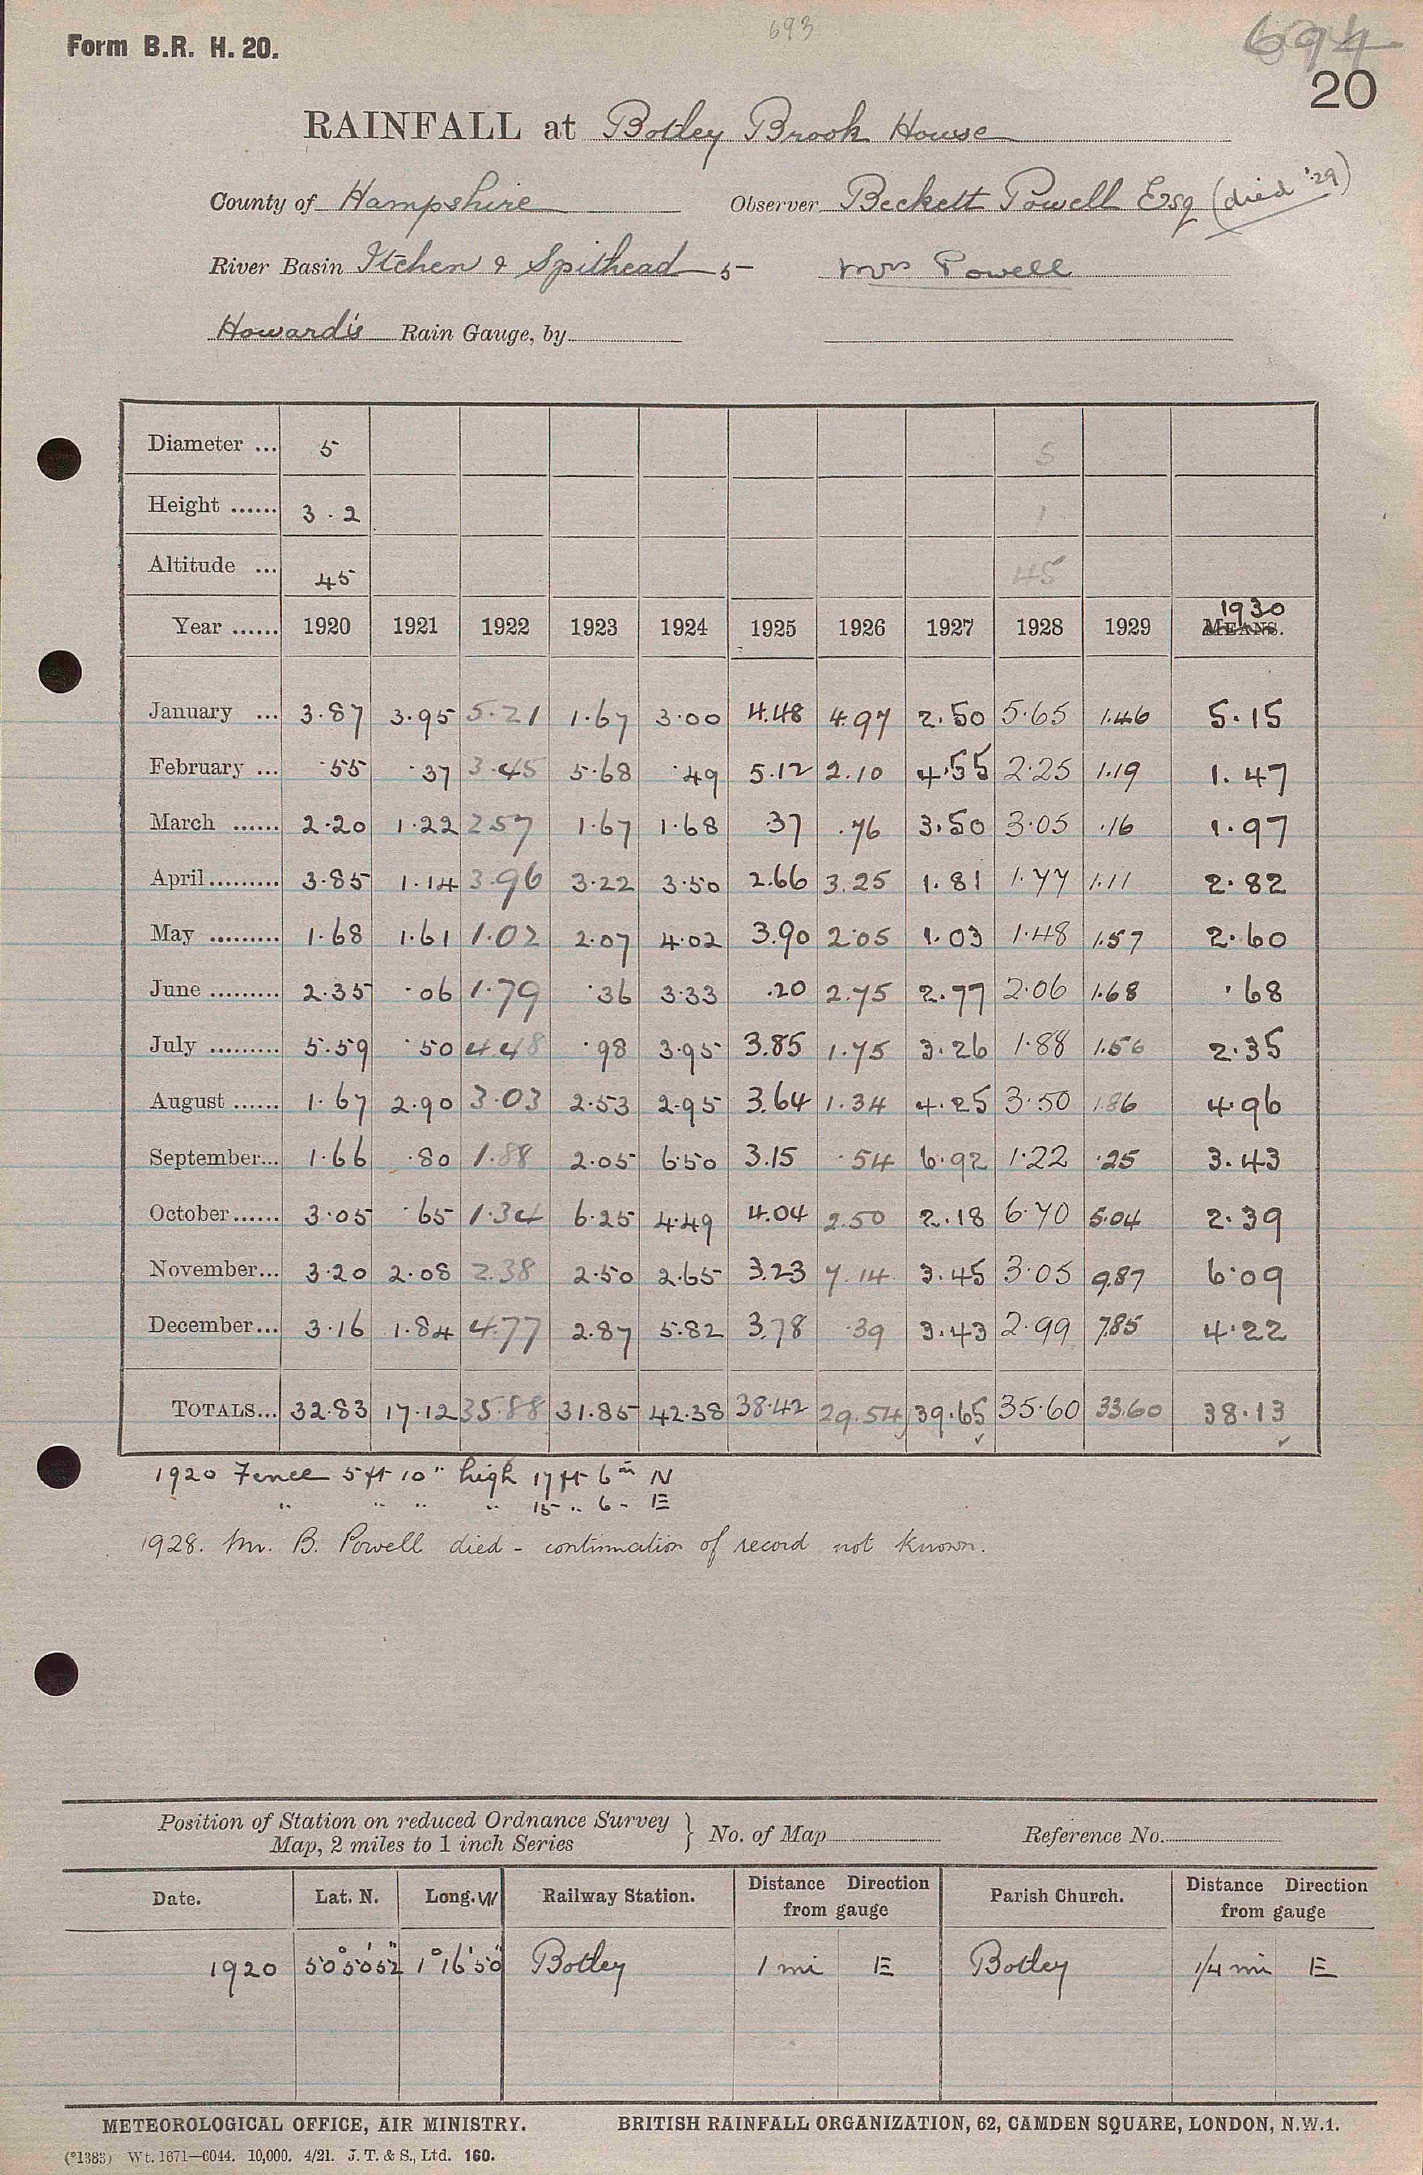 693
694
Form B.R. H. 20.
20
RAINFALL at Botley Brook House
County of Hampshire Observer Beckett Powell Esq (died '29)
River Basin Itchen & Spithead 5 Mrs Powell
Howard's Rain Gauge, by
Diameter ... 5 5
Height ...... 3 . 2 1
Altitude ... 45 45
Year ...... 1920 1921 1922 1923 1924 1925 1926 1927 1928 1929 1930 MEANS.
January ... 3.87 3.95 5.21 1.67 3.00 4.48 4.97 2.50 5.65 1.46 5.15
February ... .55 .37 3.45 5.68 .49 5.12 2.10 4.55 2.25 1.19 1.47
March ...... 2.20 1.22 2.57 1.67 1.68 .37 .76 3.50 3.05 .16 1.97
April......... 3.85 1.14 3.96 3.22 3.50 2.66 3.25 1.81 1.77 1.11 2.82
May ......... 1.68 1.61 1.02 2.07 4.02 3.90 2.05 1.03 1.48 1.57 2.60
June ......... 2.35 .06 1.79 .36 3.33 .20 2.75 2.77 2.06 1.68 .68
July ......... 5.59 .50 4.48 .98 3.95 3.85 1.75 3.26 1.88 1.56 2.35
August ...... 1.67 2.90 3.03 2.53 2.95 3.64 1.34 4.25 3.50 1.86 4.96
September... 1.66 .80 1.88 2.05 6.50 3.15 .54 6.92 1.22 .25 3.43
October...... 3.05 .65 1.34 6.25 4.49 4.04 2.50 2.18 6.70 5.04 2.39
November... 3.20 2.08 2.38 2.50 2.65 3.23 7.14 3.45 3.05 9.87 6.09
December... 3.16 1.84 4.77 2.87 5.82 3.78 .39 3.43 2.99 7.85 4.22
TOTALS... 32.83 17.12 35.88 31.85 42.38 38.42 29.54 39.65 35.60 33.60 38.13
1920 Fence 5 ft 10" high 17 ft 6 in N
" " " " 15 " 6 " E
1928. Mr. B. Powell died - continuation of record not known.
Position of Station on reduced Ordnance Survey Map, 2 miles to 1 inch Series } No. of Map Reference No.
Date. Lat. N. Long. W Railway Station. Distance from gauge Direction Parish Church. Distance from gauge Direction
1920 50° 50' 52" 1° 16' 50" Botley 1 mi E Botley 1/4 mi E
METEOROLOGICAL OFFICE, AIR MINISTRY. BRITISH RAINFALL ORGANIZATION, 62, CAMDEN SQUARE, LONDON, N.W.1.
(*1383) Wt. 1671—6044. 10,000. 4/21. J. T. & S., Ltd. 160.